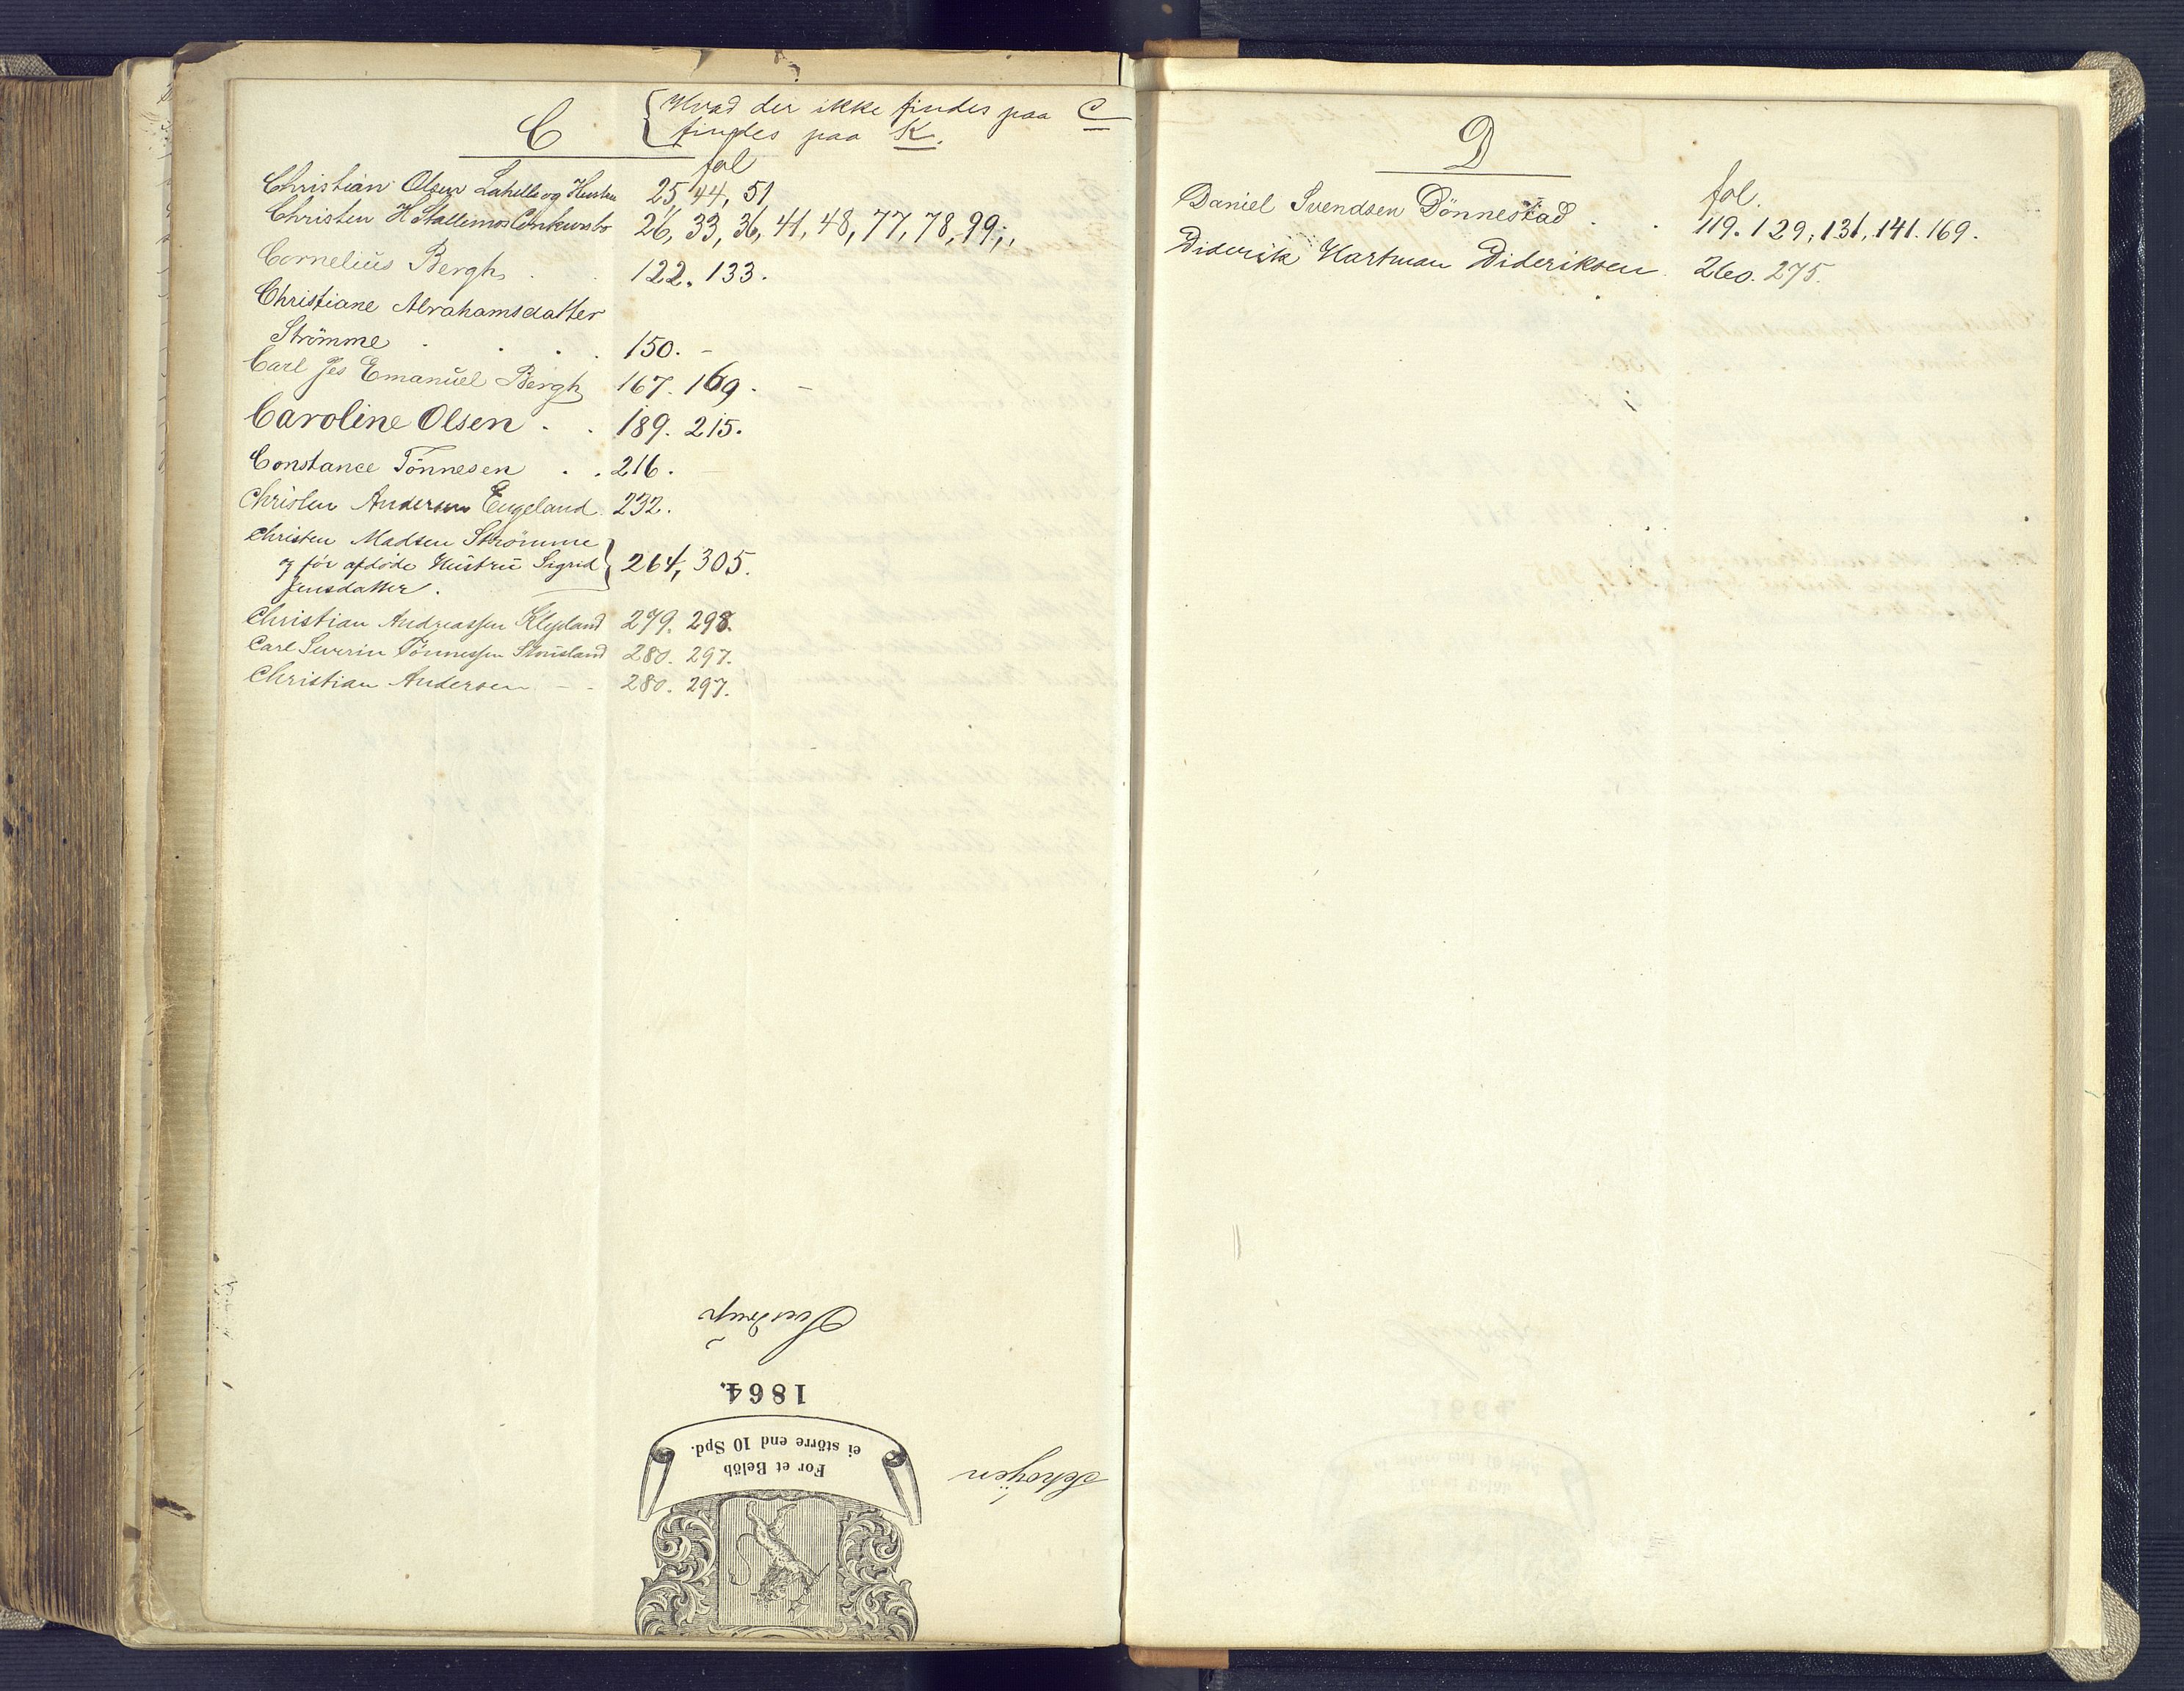 C
Hvad der ikke findes paa C
findes paa K.
fol
Christian Olsen Lahelle og Hustru 25, 44, 51
Christen H Stallemos Conkursbo 26, 33, 36, 41, 48, 77, 78, 99,
Cornelius Bergh 122. 133.
Christiane Abrahamsdatter
Strömme 150.
Carl Jes Emanuel Bergh 167. 169.
Caroline Olsen 189. 215.
Constance Tönnesen 216.
Christen Andersen Engeland 232.
Christen Madsen Strömme
og før afdöde Hustru Sigrid 264, 305.
Jensdatter.
Christian Andreassen Klepland 279. 298.
Carl Severin Tönnessen Stousland 280. 297.
Christian Andersen 280. 297.
1864.
For et Belöb
ei större end 10 Spd.
Schøyen
D
fol.
Daniel Svendsen Dönnestad 119. 129, 131, 141. 169.
Diderik Hartman Dideriksen 260. 275.